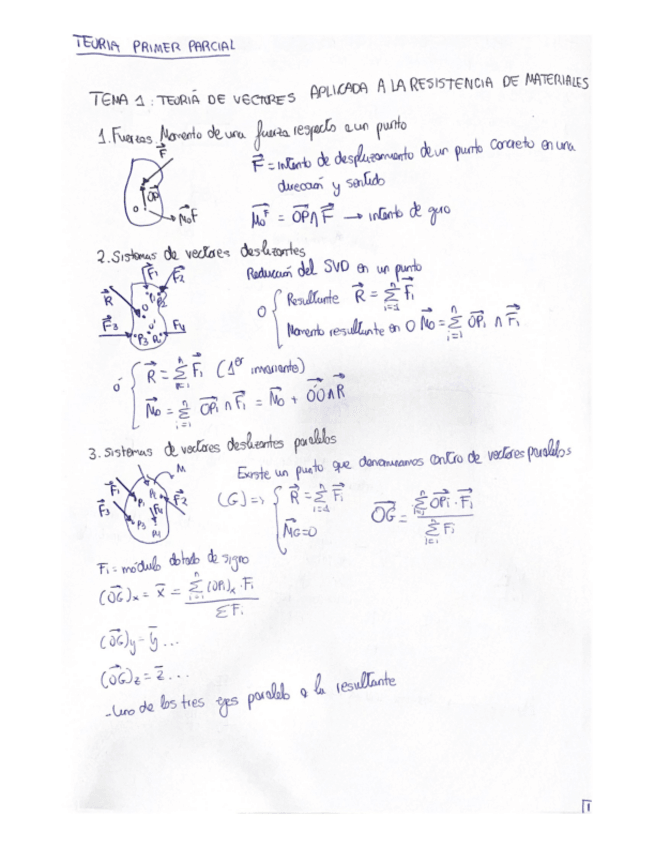 TEORIA PRIMER PARCIAL
TEMA 1: TEORIA DE VECTORES APLICADA A LA RESISTENCIA DE MATERIALES
1. Fuerzas Momento de una fuerza respecto a un punto
F⃗
F⃗ = intento de desplazamiento de un punto concreto en una
dirección y sentido
OP⃗
O
M⃗oF
M⃗oF = OP⃗ ∧ F⃗ → intento de giro
2. Sistemas de vectores deslizantes
Reducción del SVD en un punto
F⃗1 F⃗2
R⃗
F⃗3 F4
O { Resultante R⃗ = Σ(i=1→n) F⃗i
Momento resultante en O M⃗o = Σ(i=1→n) OP⃗i ∧ F⃗i
ó { R⃗ = Σ(i=1→n) F⃗i (1er invariante)
M⃗ó = Σ(i=1→n) óP⃗i ∧ F⃗i = M⃗o + óO⃗ ∧ R⃗
3. Sistemas de vectores deslizantes paralelos
Existe un punto que denominamos centro de vectores paralelos
M
F⃗1 F⃗2 F⃗3 F4
P1 P2 P3 P4
(G) => { R⃗ = Σ(i=1→n) F⃗i
M⃗G = 0
OG⃗ = Σ(i=1→n) OP⃗i · F⃗i / Σ(i=1→n) Fi
Fi = módulo dotado de signo
(OG⃗)x = x̄ = Σ(i=1→n) (OPi)x · Fi / ΣFi
(OG⃗)y = ȳ ...
(OG⃗)z = z̄ ...
- Uno de los tres ejes paralelo a la resultante
1